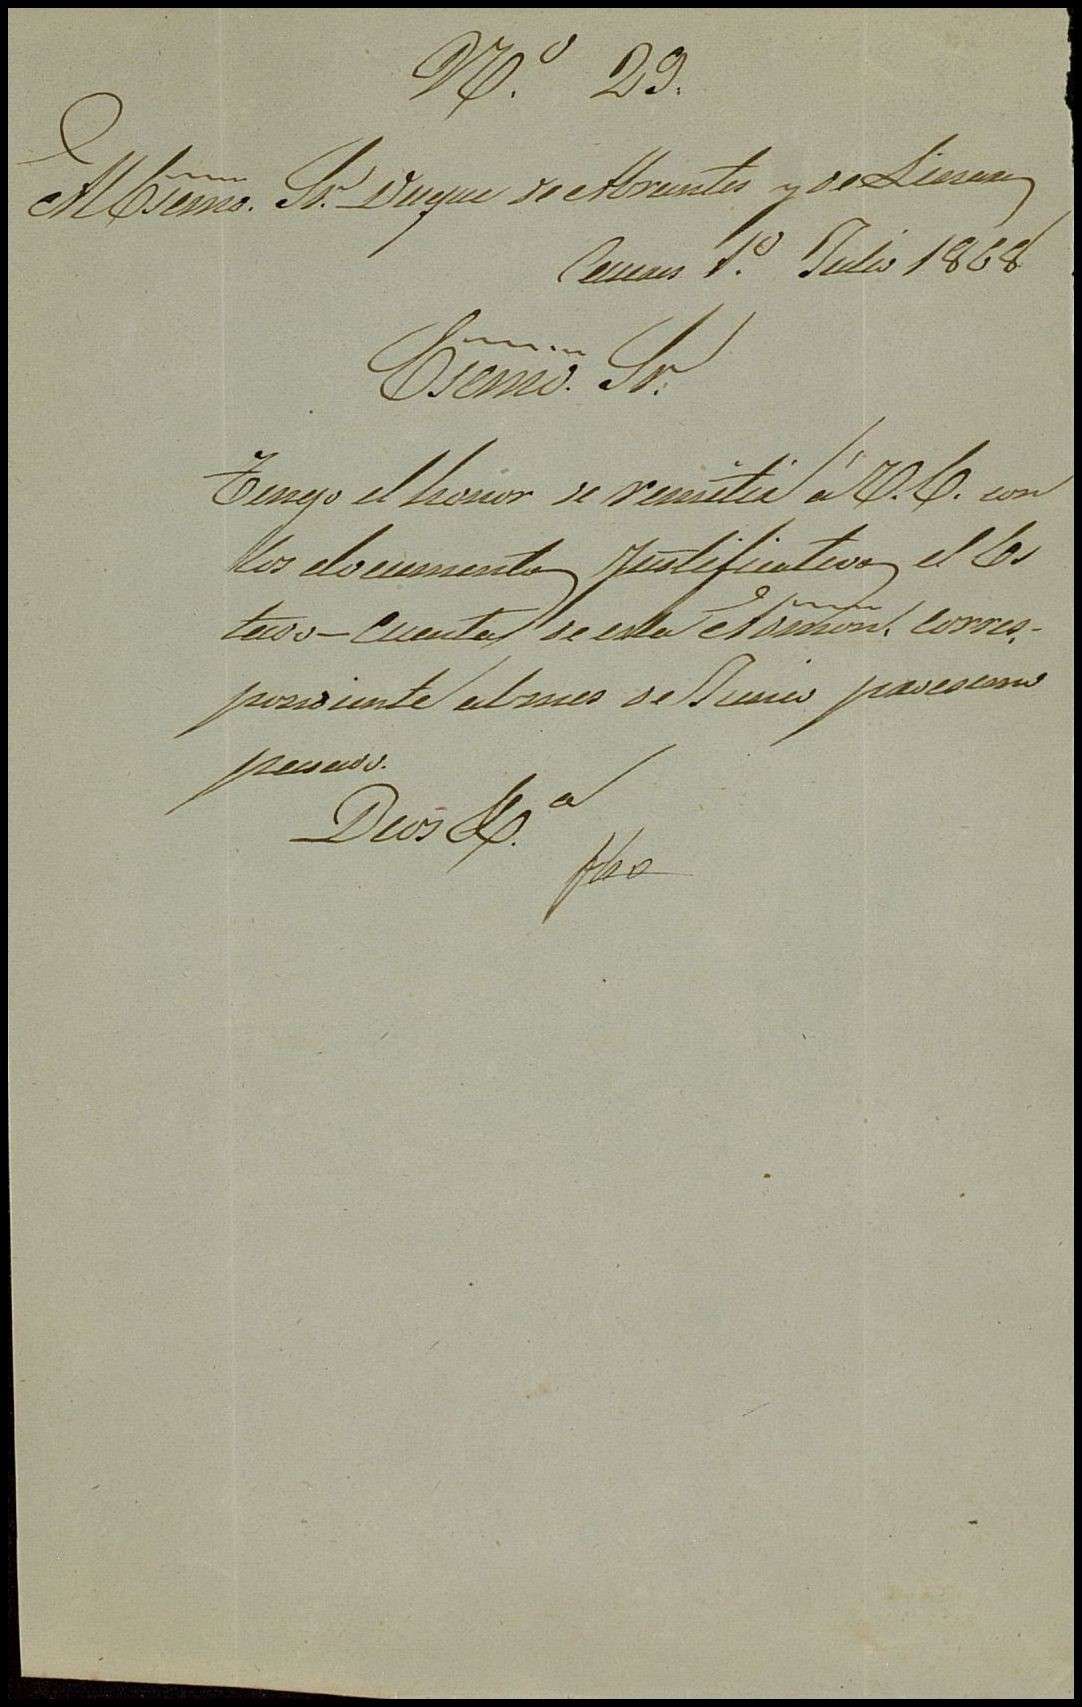 N.º 29.
Al Esemo. Sr. Duque de Abrantes y de Linares
1.º Julio 1868
Esemo. Sr.
Tengo el honor de remitir á V. E. con
los documentos justificativos el Es
tado-cuenta de esta Admon. corres-
pondiente al mes de Junio procsimo
pasado.
Dios &.ª